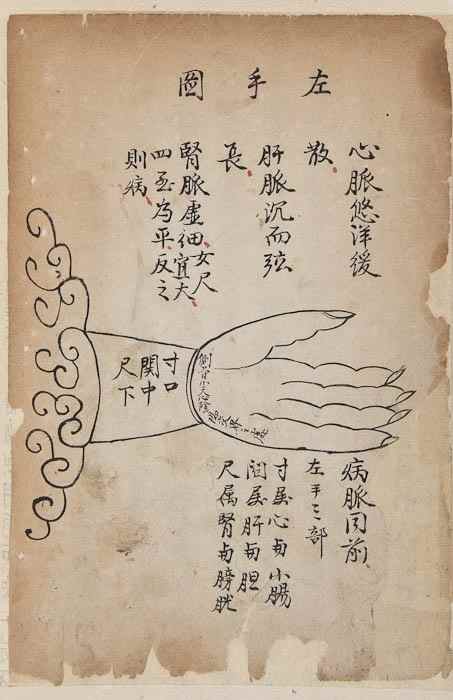 左手圖
心脈悠洋後
散
肝脈沉而弦
長
腎脈虛細女尺
四至為平反之
則病
宜大
寸口
關中
尺下
病脈同前
左手三部
寸屬心與小腸
關屬肝與胆
尺屬腎與膀胱